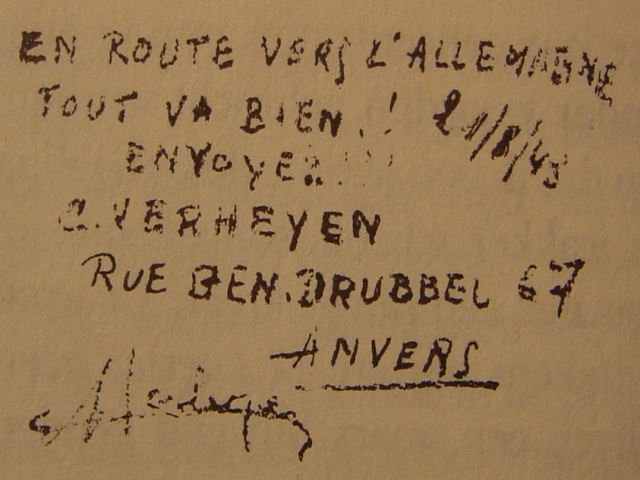 EN ROUTE VERS L'ALLEMAGNE
TOUT VA BIEN.! 21/8/43
ENVOYEZ!!!
C. VERHEYEN
RUE GEN. DRUBBEL 67
ANVERS